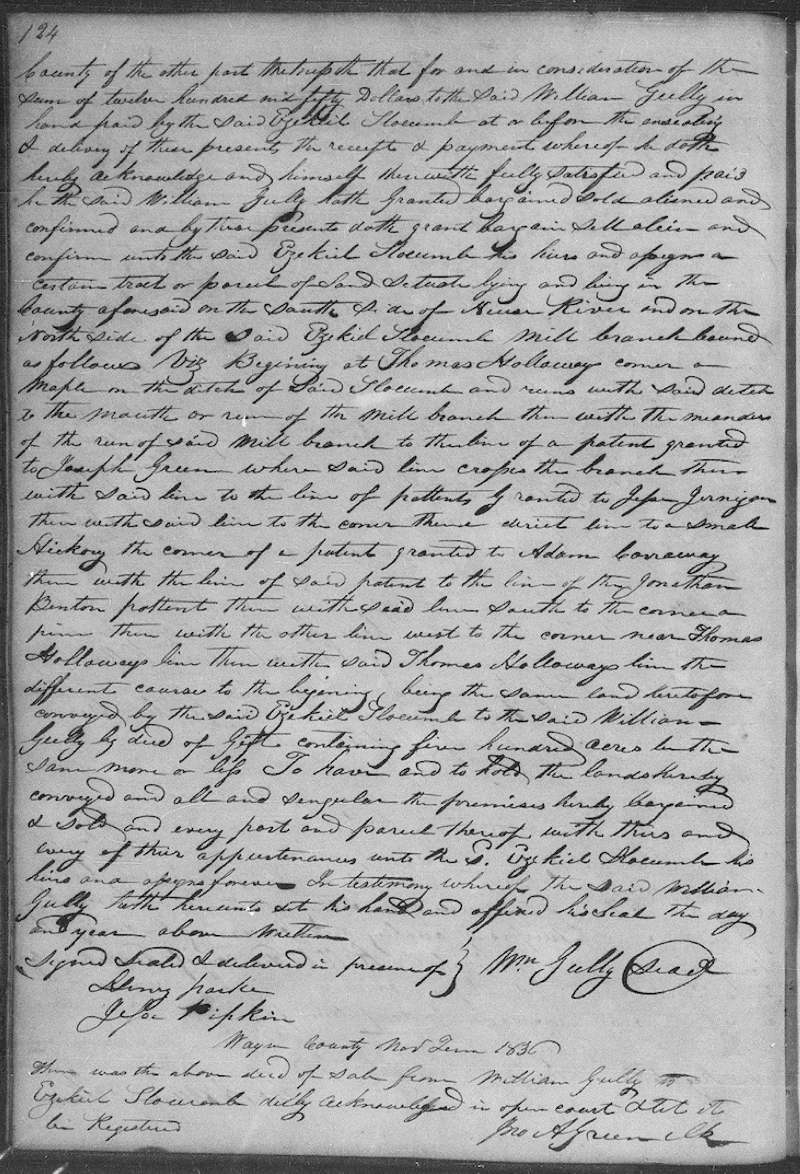 124
County of the other part Witnesseth that for and in consideration of the
sum of twelve hundred and fifty Dollars to the said William Gully in
hand paid by the said Ezekiel Slocumb at or before the ensealing
& delivery of these presents the receipt & payment whereof he doth
hereby acknowledge and himself therewith fully satisfied and paid
he the said William Gully hath Granted bargained sold aliened and
confirmed and by these presents doth grant bargain sell alien and
confirm unto the said Ezekiel Slocumb his heirs and assigns a
certain tract or parcel of Land Situate lying and being in the
County aforesaid on the South Side of Neuse River and on the
North side of the said Ezekiel Slocumb Mill branch bound
as follows Viz Begining at Thomas Holloways corner a
Maple on the ditch of Said Slocumb and runs with said ditch
to the mouth or run of the Mill branch then with the meanders
of the run of said Mill branch to the line of a patent granted
to Joseph Green where said line crosses the branch then
with said line to the line of pattents Granted to Jesse Jernigan
then with said line to the corner thence direct line to a small
Hickory the corner of a patent granted to Adam Carraway
then with the line of said patent to the line of the Jonathan
Benton pattent then with said line south to the corner a
pine then with the other line west to the corner near Thomas
Holloways line then with said Thomas Holloways line the
different courses to the begining, being the same land heretofore
conveyed by the said Ezekiel Slocumb to the said William
Gully by deed of Gift containing five hundred acres be the
same more or less To have and to hold the lands hereby
conveyed and all and singular the premises hereby bargained
& sold and every part and parcel thereof with theirs and
every of their appurtenances unto the S. Ezekiel Slocumb his
heirs and assigns forever In testimony whereof the said William
Gully hath hereunto set his hand and affixed his Seal the day
and year above Written
Signed Seald & delivered in presence of } Wm Gully Seal
Henry parke
Jesse Pipkin
Wayne County Nov Term 1836
then was the above deed of sale from William Gully to
Ezekiel Slocumb duly acknowledged in open court & let it
be Registered
Jno A Green Clk